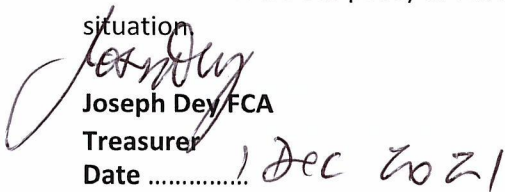 situation.
Joseph Dey
Joseph Dey FCA
Treasurer
Date .............. 1 Dec 2021